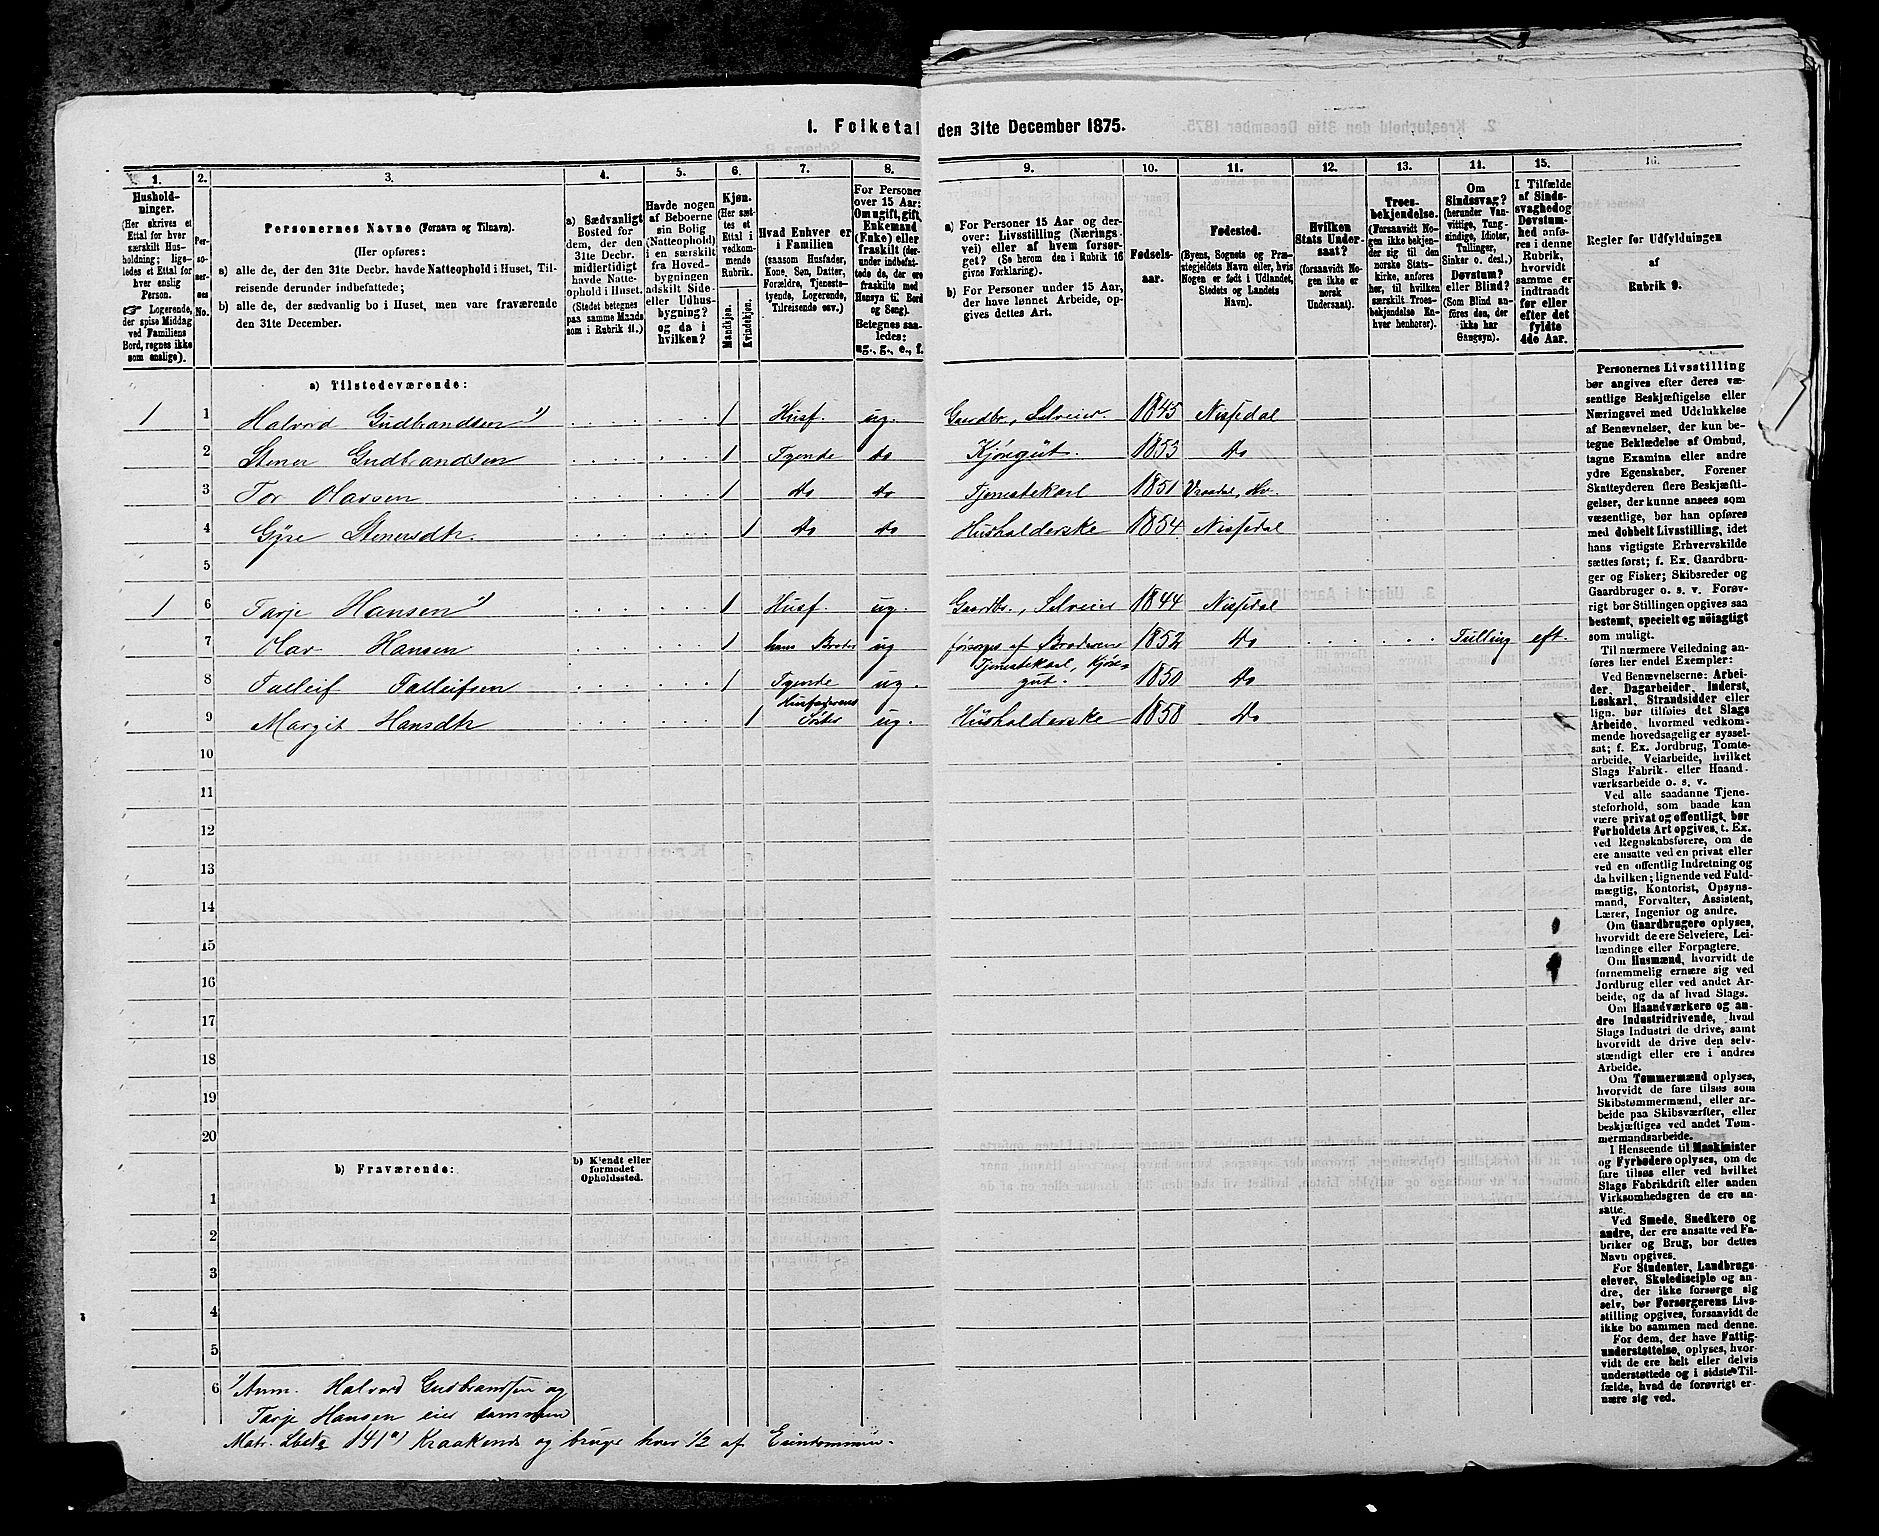 1. Folketal den 31te December 1875.
1. 2. 3. 4. 5. 6. 7. 8. 9. 10. 11. 12. 13. 14. 15. 16.
Hushold-
ninger.
(Her skrives et
Ettal for hver
særskilt Hus-
holdning; lige-
ledes et Ettal for
hver enslig
Person.
☞ Logerende,
der spise Middag
ved Familiens
Bord, regnes ikke
som enslige).
Per-
so-
ner-
nes
No.
Personernes Navne (Fornavn og Tilnavn).
(Her opføres:
a) alle de, der den 31te Decbr. havde Natteophold i Huset, Til-
reisende derunder indbefattede;
b) alle de, der sædvanlig bo i Huset, men vare fraværende
den 31te December.
a) Sædvanligt
Bosted for
dem, der den
31te Decbr.
midlertidigt
havde Natte-
ophold i Huset.
(Stedet betegnes
paa samme Maade
som i Rubrik 11.)
Havde nogen
af Beboerne
sin Bolig
(Natteophold)
i en særskilt
fra Hoved-
bygningen
adskilt Side-
eller Udhus-
bygning?
og da i
hvilken?
Kjøn.
(Her sæt-
tes et
Ettal i
vedkom-
mende
Rubrik.
Mandkjøn.
Kvindekjøn.
Hvad Enhver er
i Familien
(saasom Husfader,
Kone, Søn, Datter,
Forældre, Tjeneste-
tyende, Logerende,
Tilreisende osv.)
For Personer
over 15 Aar:
Om ugift, gift,
Enkemand
(Enke) eller
fraskilt (der-
under indbefat-
tede de, der ere
fraskilte med
Hensyn til Bord
og Seng).
Betegnes saa-
ledes:
ug., g., e., f.
a) For Personer 15 Aar og der-
over: Livsstilling (Nærings-
vei) eller af hvem forsør-
get? (Se herom den i Rubrik 16
givne Forklaring).
b) For Personer under 15 Aar,
der have lønnet Arbeide, op-
gives dettes Art.
Fødsels-
aar.
Fødested.
(Byens, Sognets og Præ-
stegjeldets Navn eller, hvis
Nogen er født i Udlandet,
Stedets og Landets
Navn).
Hvilken
Stats Under-
saat?
(forsaavidt No-
gen ikke er
norsk
Undersaat).
Troes-
bekjendelse.
(Forsaavidt No-
gen ikke bekjen-
der sig til den
norske Stats-
kirke, anføres
her, til hvilken
særskilt Troes-
bekjendelse En-
hver henhører).
Om
Sindssvag?
(herunder Van-
vittige, Tung-
sindige, Idioter,
Tullinger,
Sinker o. desl.)
Døvstum?
eller Blind?
(Som Blind an-
føres den, der
ikke har
Gangsyn).
I Tilfælde
af Sinds-
svaghed og
Døvstum-
hed anfø-
res i denne
Rubrik,
hvorvidt
samme er
indtraadt
før eller
efter det
fyldte
4de Aar.
Regler for Udfyldningen
af
Rubrik 9.
a) Tilstedeværende:
1 1 Halvord Gudbrandsen ¹) 1 Husf. ug. Gaardbr., Selveier 1845 Nissedal
2 Stener Gudbrandsen 1 Tyende do Kjøregut. 1853 do
3 Tor Olavsen 1 do do Tjenestekarl 1851 Vraadal, Hv.
4 Gyre Stenersdtr. 1 do do Husholderske 1854 Nissedal
5
1 6 Tarje Hansen ¹) 1 Husf. ug. Gaardbr., Selveier 1844 Nissedal
7 Olav Hansen 1 hans Broder ug forsørges af Broderen 1852 do Tulling eft.
8 Talleif Talleifsen 1 Tyende ug. Tjenestekarl, Kjøre-
gut. 1850 do
9 Margit Hansdtr 1 Husfaderens
Søster ug. Husholderske 1858 do
10
11
12
13
14
15
16
17
18
19
20
b) Fraværende:
b) Kjendt eller
formodet
Opholdssted.
1
2
3
4
5
6
¹) Anm. Halvord Gudbrandsen og
Tarje Hansen eier sammen
Matr. Lbetg 141ᵃ) Kraakenes og bruge hver 1/2 af Eiendommen.
Personernes Livsstilling
bør angives efter deres væ-
sentlige Beskjæftigelse eller
Næringsvei med Udelukkelse
af Benævnelser, der kun be-
tegne Beklædelse af Ombud,
tagne Examina eller andre
ydre Egenskaber. Forener
Skatteyderen flere Beskjæfti-
gelser, der kunne ansees som
væsentlige, bør han opføres
med dobbelt Livsstilling, idet
hans vigtigste Erhvervskilde
sættes først; f. Ex. Gaardbru-
ger og Fisker; Skibsreder og
Gaardbruger o. s. v. Forøv-
rigt bør Stillingen opgives saa
bestemt, specielt og nöiagtigt
som muligt.
Til nærmere Veiledning an-
føres her endel Exempler:
Ved Benævnelserne: Arbei-
der, Dagarbeider, Inderst,
Løskarl, Strandsidder eller
lign. bør tilføies det Slags
Arbeide, hvormed vedkom-
mende hovedsagelig er syssel-
sat; f. Ex. Jordbrug, Tomte-
arbeide, Veiarbeide, hvilket
Slags Fabrik- eller Haand-
værksarbeide o. s. v.
Ved alle saadanne Tjene-
steforhold, som baade kan
være privat og offentligt, bør
Forholdets Art opgives, t. Ex.
ved Regnskabsførere, om de
ere ansatte ved en privat eller
ved en offentlig Indretning og
da hvilken; lignende ved Fuld-
mægtig, Kontorist, Opsyns-
mand, Forvalter, Assistent,
Lærer, Ingeniør og andre.
Om Gaardbrugere oplyses,
hvorvidt de ere Selveiere, Lei-
lændinge eller Forpagtere.
Om Husmænd, hvorvidt de
fornemmelig ernære sig ved
Jordbrug eller ved andet Ar-
beide, og da af hvad Slags.
Om Haandværkere og an-
dre Industridrivende, hvad
Slags Industri de drive, samt
hvorvidt de drive den selv-
stændigt eller ere i andres
Arbeide.
Om Tømmermænd oplyses,
hvorvidt de fare tilsøs som
Skibstømmermænd, eller ar-
beide paa Skibsværfter, eller
beskjæftiges ved andet Tøm-
mermandsarbeide.
I Henseende til Maskinister
og Fyrbødere oplyses, om de
fare tilsøs eller ved hvilket
Slags Fabrikdrift eller anden
Virksomhedsgren de ere an-
satte.
Ved Smede, Snedkere og
andre, der ere ansatte ved Fa-
briker og Brug, bør dettes
Navn opgives.
For Studenter, Landbrugs-
elever, Skoledisciple og an-
dre, der ikke forsørge sig
selv, bør Forsørgerens Livs-
stilling opgives, forsaavidt de
ikke bo sammen med denne.
For dem, der have Fattig-
understøttelse, oplyses, hvor-
vidt de ere helt eller delvis
understøttede og i sidste Til-
fælde, hvad de forøvrigt er-
nære sig ved.